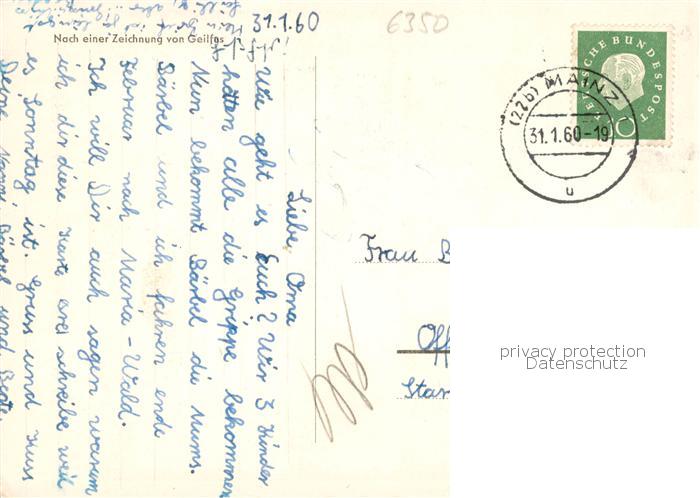 31.1.60
6350
Nach einer Zeichnung von Geilfus
Liebe Oma
Wie geht es Euch? Wir 3 Kinder
hatten alle die Grippe bekommen
Nun bekommt Bärbel die Mums.
Bärbel und ich fahren ende
Februar nach Maria-Wald.
Ich will Dir auch sagen warum
ich dir diese Karte erst schreibe weil
es Sonntag ist. Gruss und Kuss
Deine Bärbel und
DEUTSCHE BUNDESPOST
10
(22b) MAINZ
31.1.60-19
u
Frau B
Off
Star
privacy protection
Datenschutz